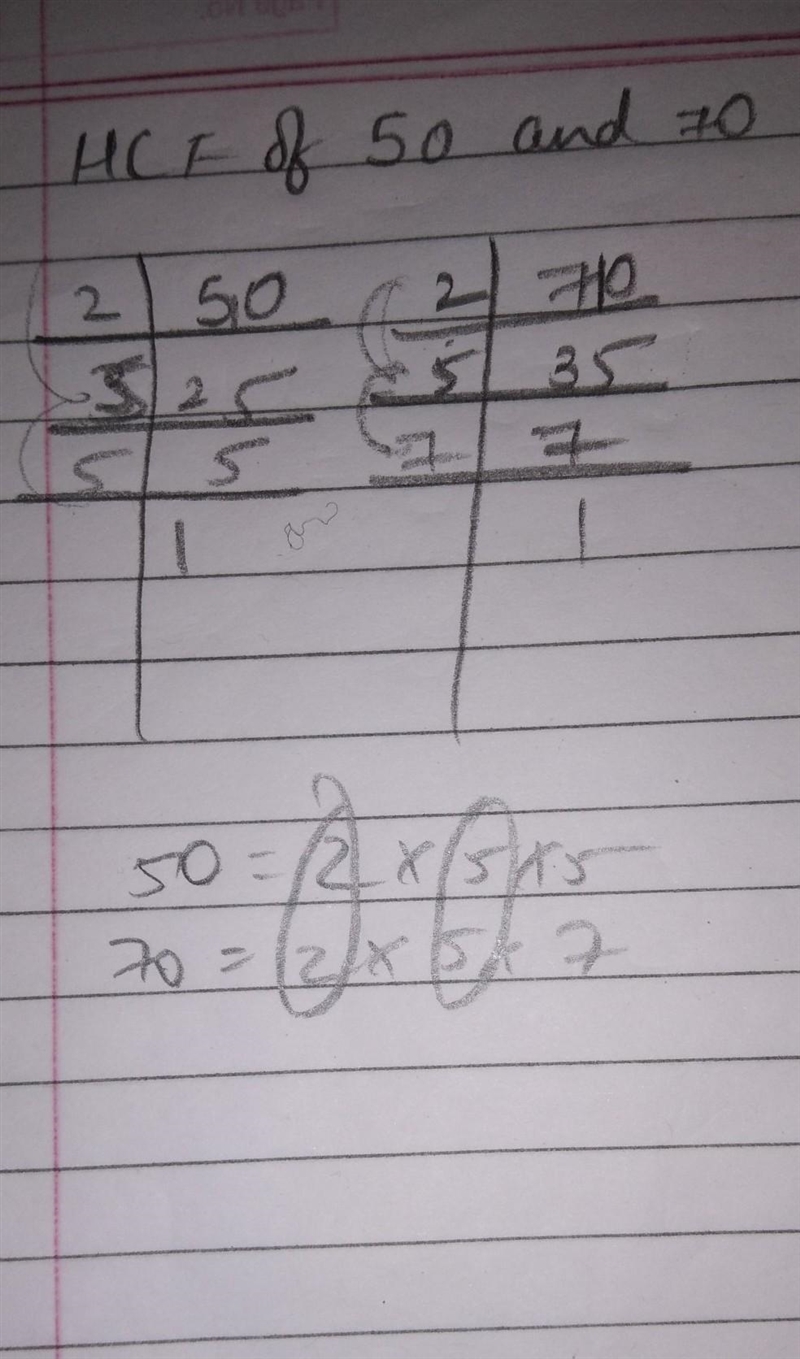 HCF of 50 and 70
2 50 2 70
5 25 5 35
5 5 7 7
1 1
50 = 2 x 5 x 5
70 = 2 x 5 x 7